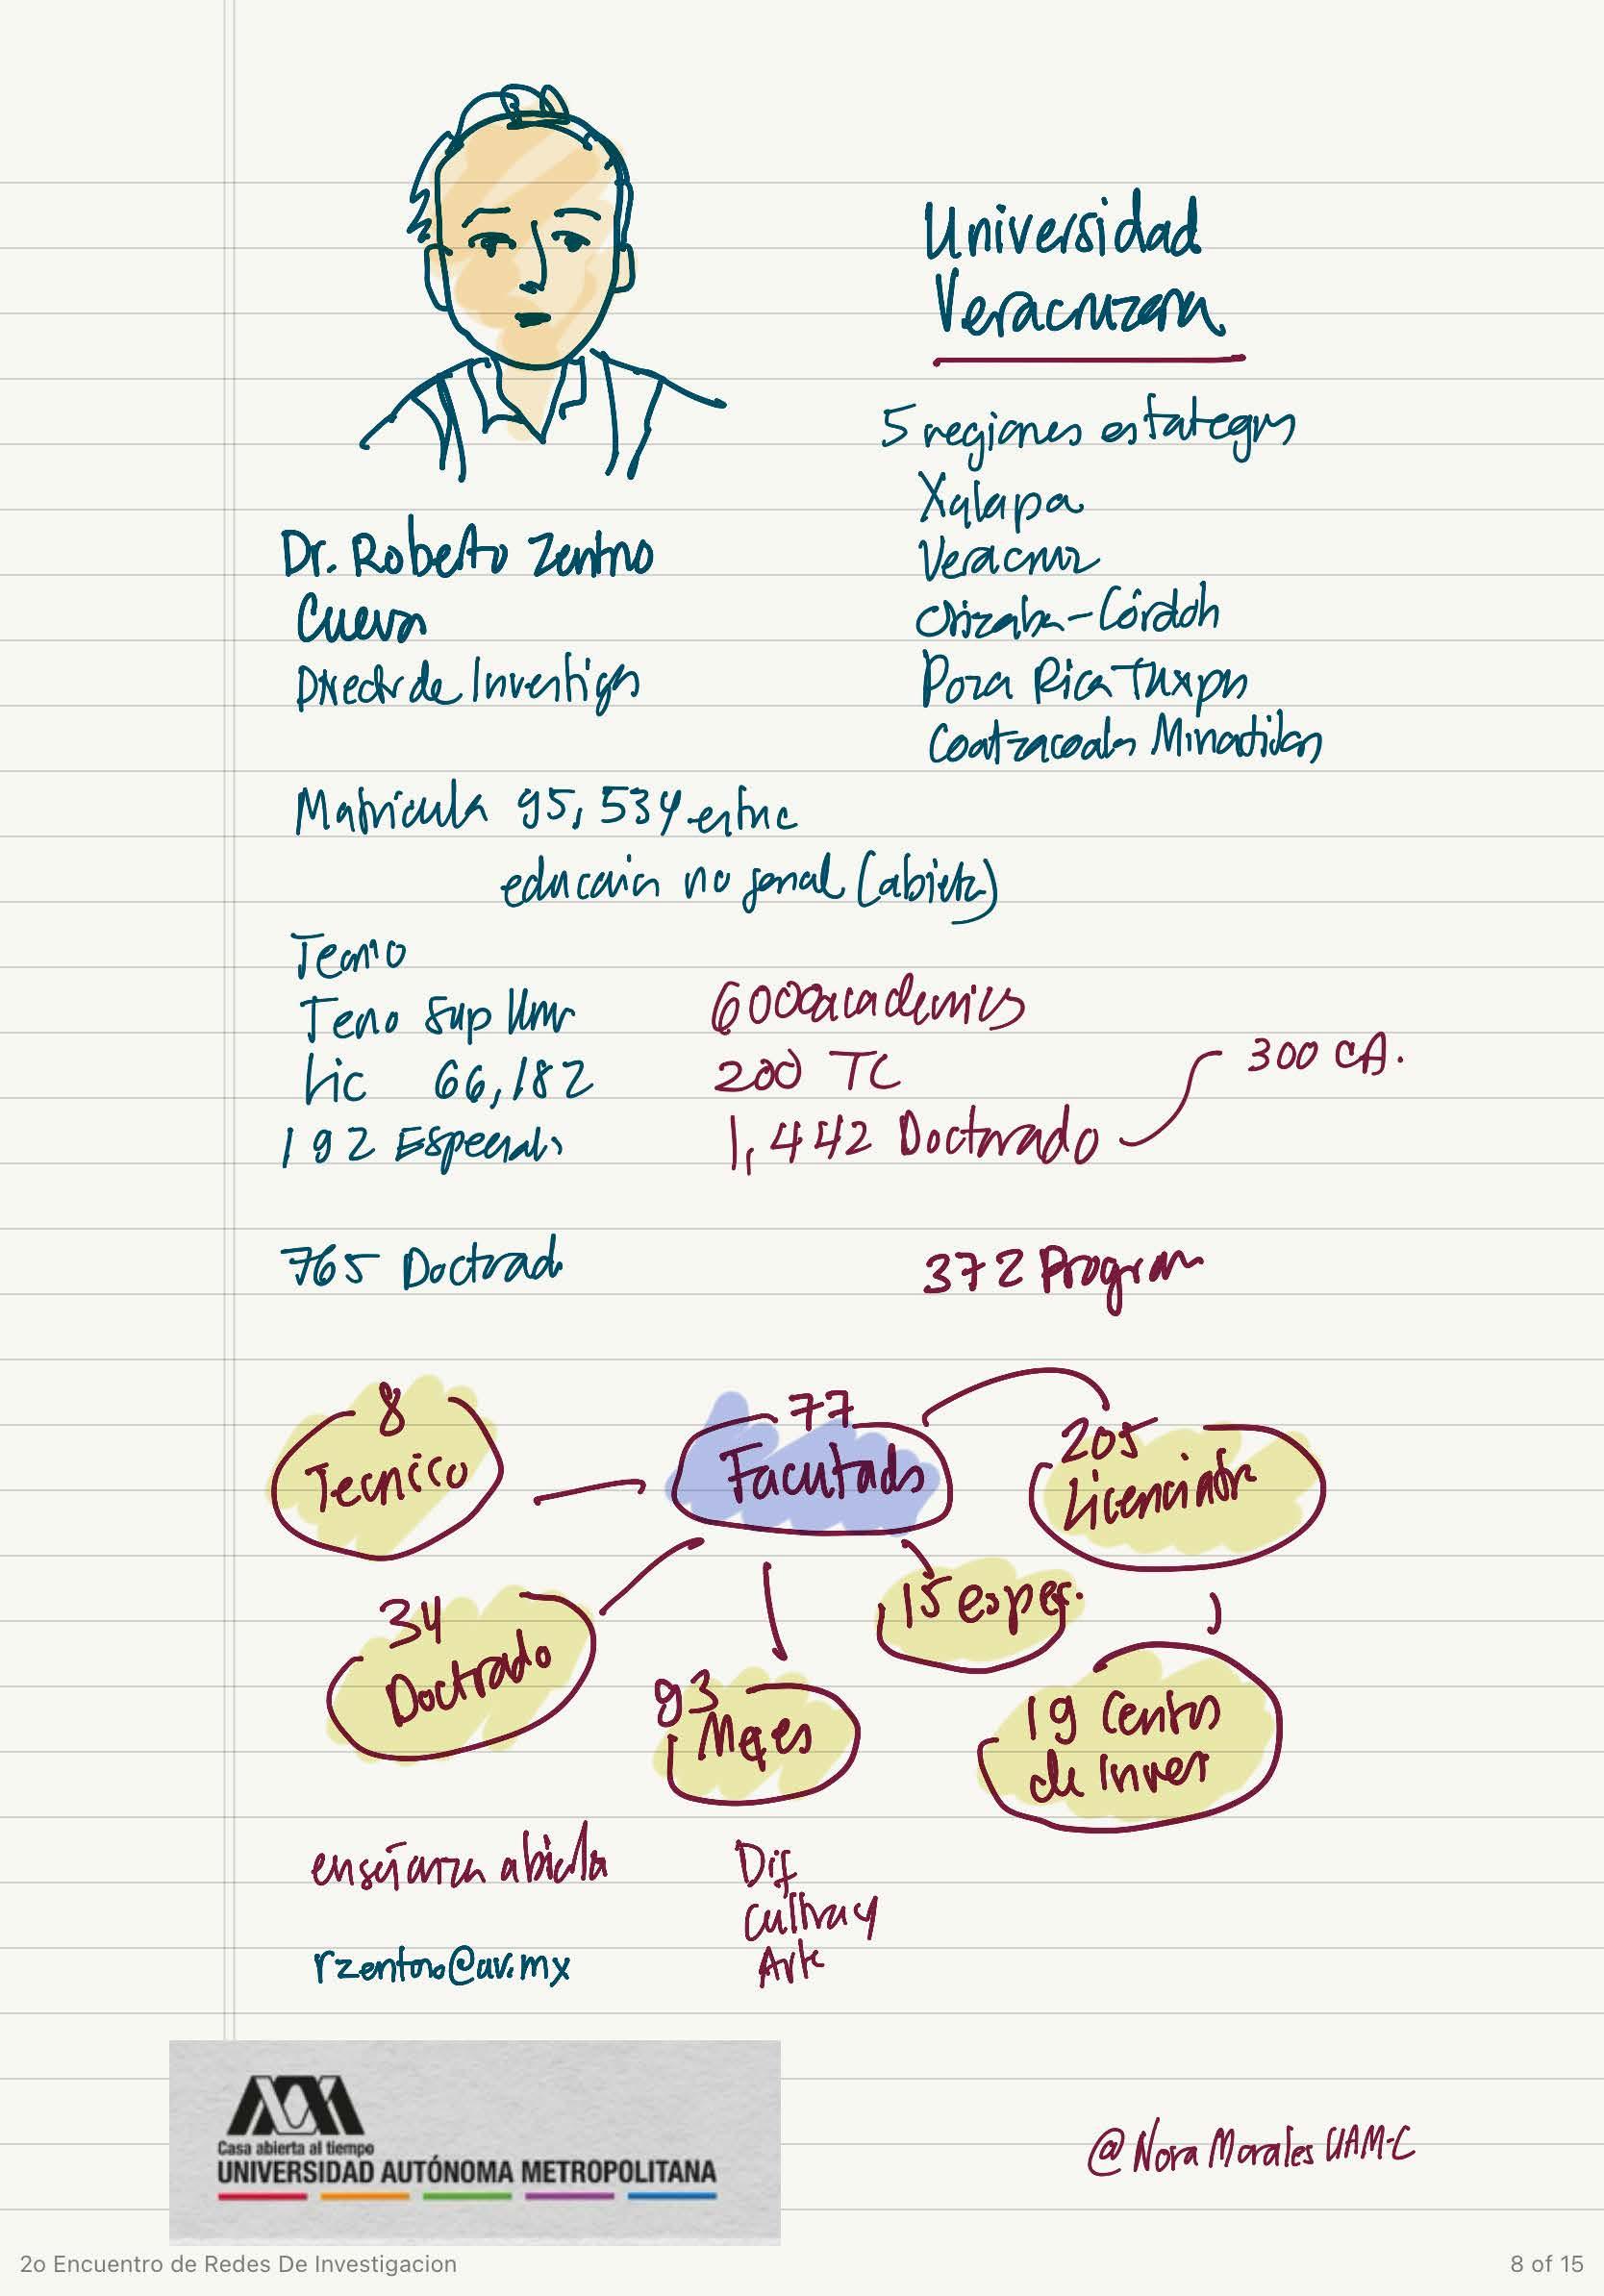 Universidad
Veracruzana
5 regiones estategas
Xalapa
Veracruz
Orizaba-Córdob
Poza Rica Tuxpn
Coatzacoalcs Minatitlan
Dr. Roberto Zenteno
Cuevas
Director de Investign
Matricula 95,534 entre
educacion no formal (abierta)
Tecnio
Tecno Sup Univ
Lic 66,182
192 Especials
6000 academics
200 TC
1,442 Doctorado
300 CA.
765 Doctrad
372 Program
8
Tecnico
77
Facultads
205
Licenciatr
34
Doctrado
93
15 espec.
19 Centros
de Inves
enseñanza abierta
Dif
Cultura y
Arte
rzenteno@uv.mx
Casa abierta al tiempo
UNIVERSIDAD AUTÓNOMA METROPOLITANA
@Nora Morales UAM-C
2o Encuentro de Redes De Investigacion
8 of 15